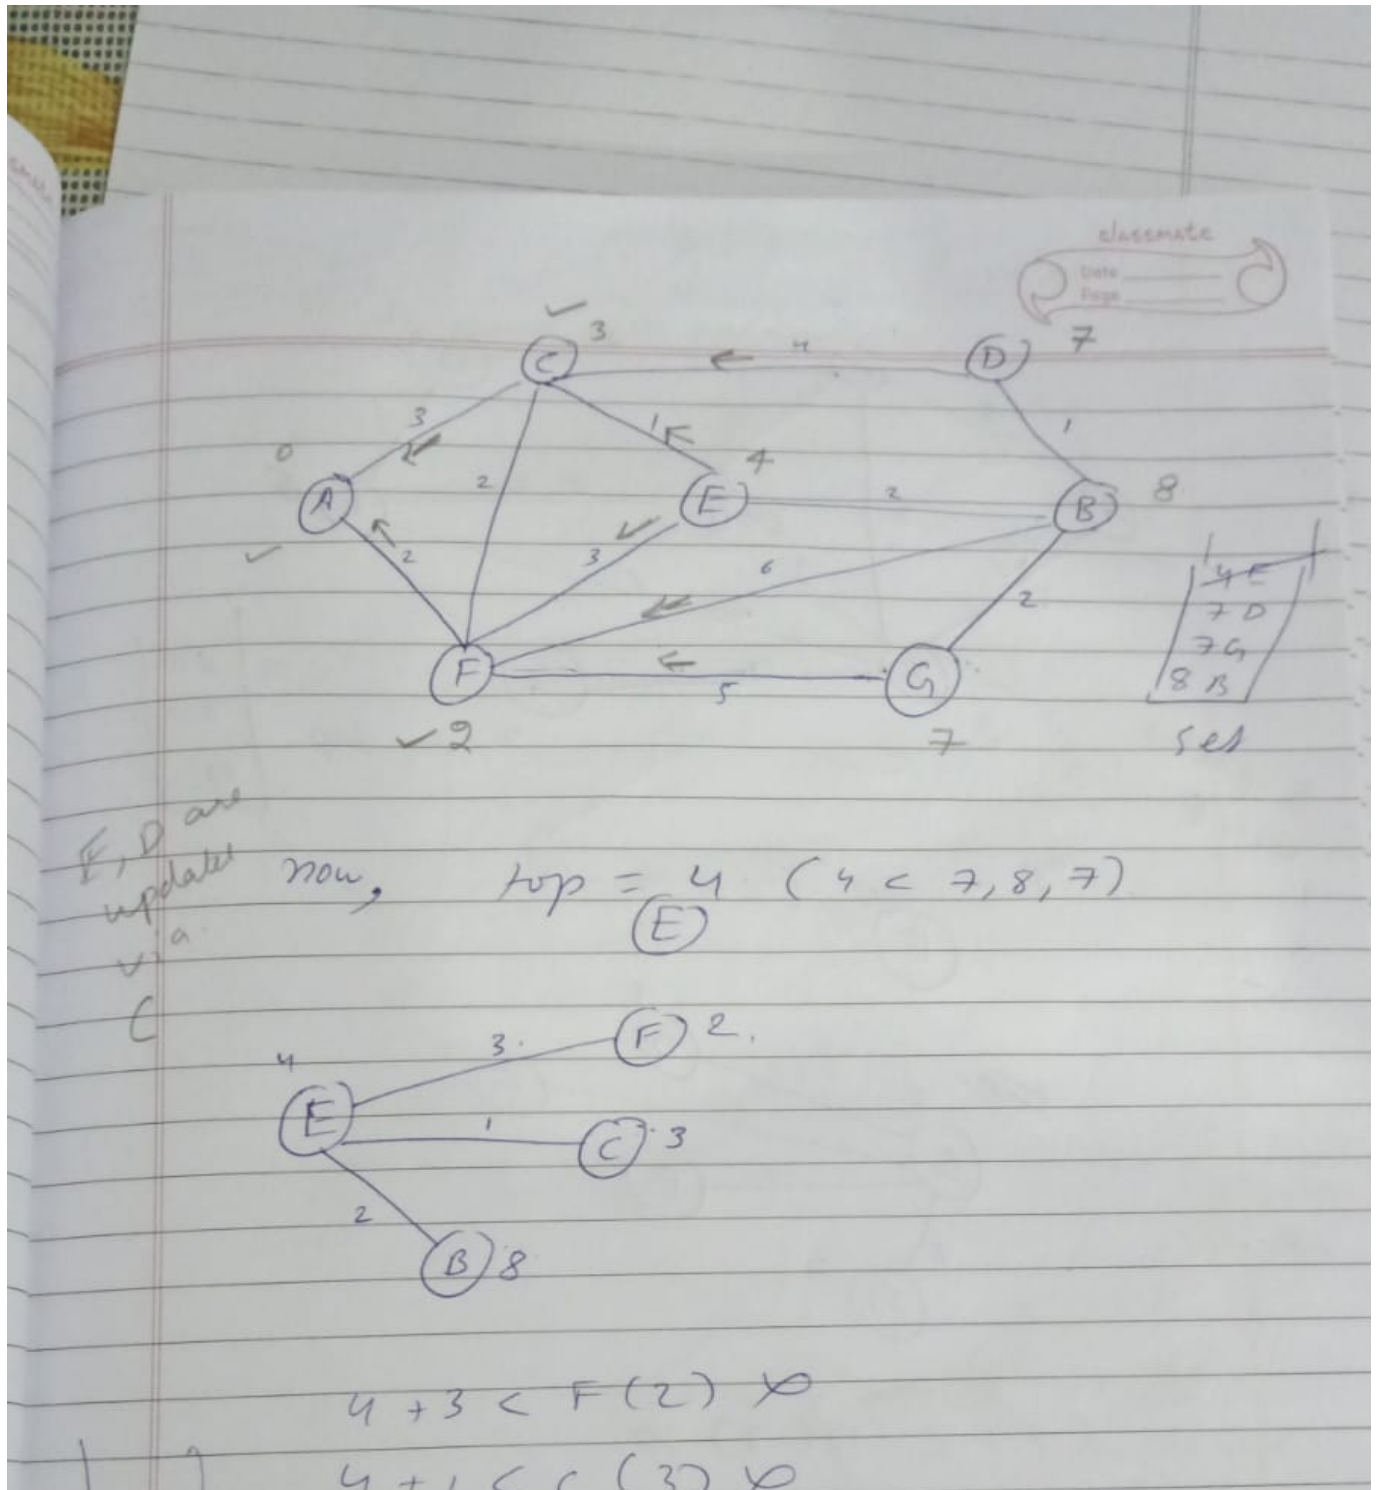 classmate
Date
Page
C 3
4
D 7
3
1
1
0
2
4
A
E
2
B 8
2
3
6
2
4 E
7 D
F
5
G
7 G
8 B
2
7
Set
E, D are
updated
via
C
now, top = 4 (4 < 7, 8, 7)
E
3 F 2.
4
E 1 C 3
2
B 8
4 + 3 < F (2)
4 + 1 < C (3)